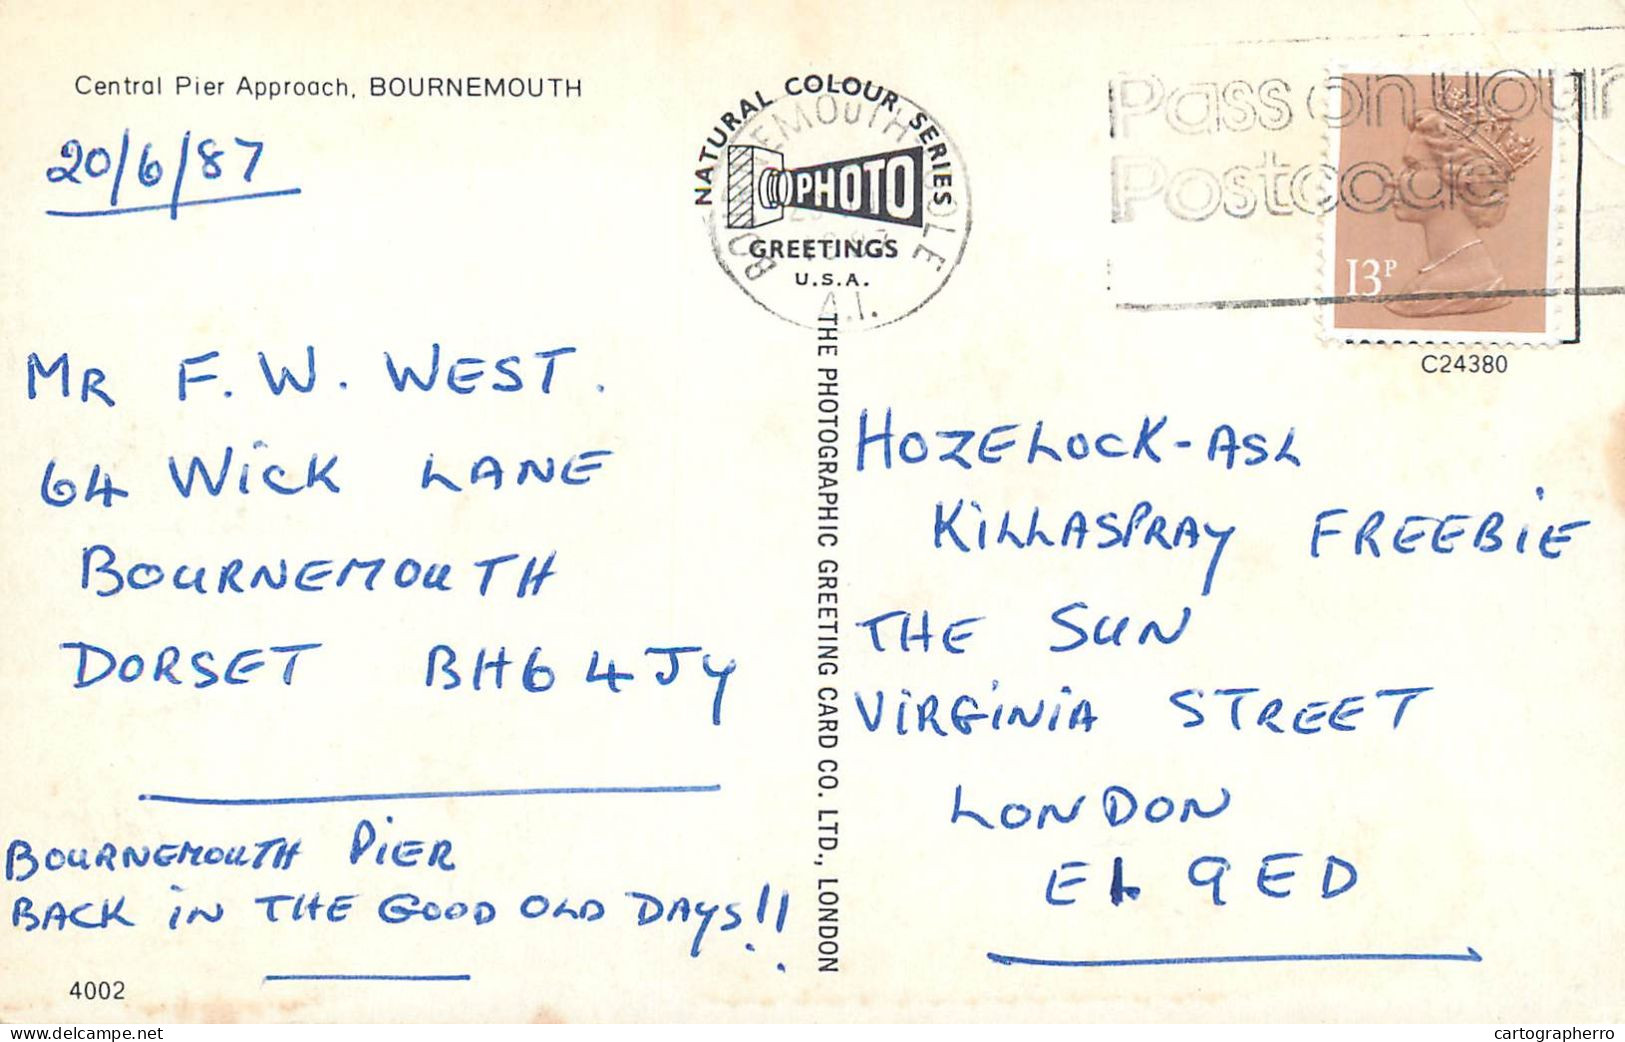 Central Pier Approach, BOURNEMOUTH
20/6/87
MR F. W. WEST.
64 WiCK LANE
BOURNEMOUTH
DORSET BH6 4JY
BOURNEMOUTH PIER
BACK iN THE GOOD OLD DAYS!!
4002
NATURAL COLOUR SERIES
PHOTO
GREETINGS
U.S.A.
BOURNEMOUTH POOLE
A.I.
THE PHOTOGRAPHIC GREETING CARD CO. LTD., LONDON
Pass on your
Postcode
13P
C24380
HOZELOCK-ASL
KiLLASPRAY FREEBiE
THE SUN
ViRGiNiA STREET
LONDON
E1 9ED
delcampe.net
cartographerro